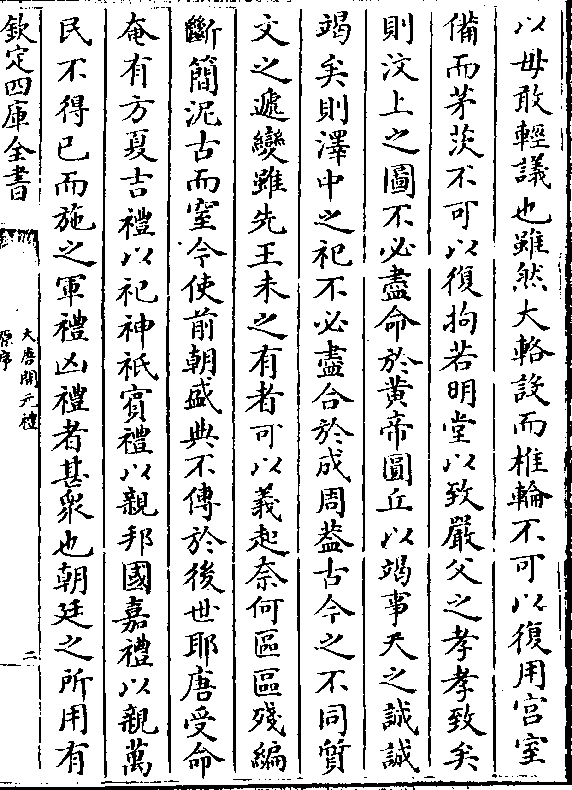 以毋敢輕議也雖然大輅設而椎輪不可以復用宫室
備而茅茨不可以復拘若明堂以致嚴父之孝孝致矣
則汶上之圖不必盡命於黄帝圓丘以竭事天之誠誠
竭矣則澤中之祀不必盡合於成周葢古今之不同質
文之遞變雖先王未之有者可以義起奈何區區殘編
斷簡泥古而窒今使前朝盛典不傳於後世耶唐受命
奄有方夏吉禮以祀神祇賓禮以親邦國嘉禮以親萬
民不得已而施之軍禮凶禮者甚衆也朝廷之所用有
欽定四庫全書
大唐開元禮
序
二